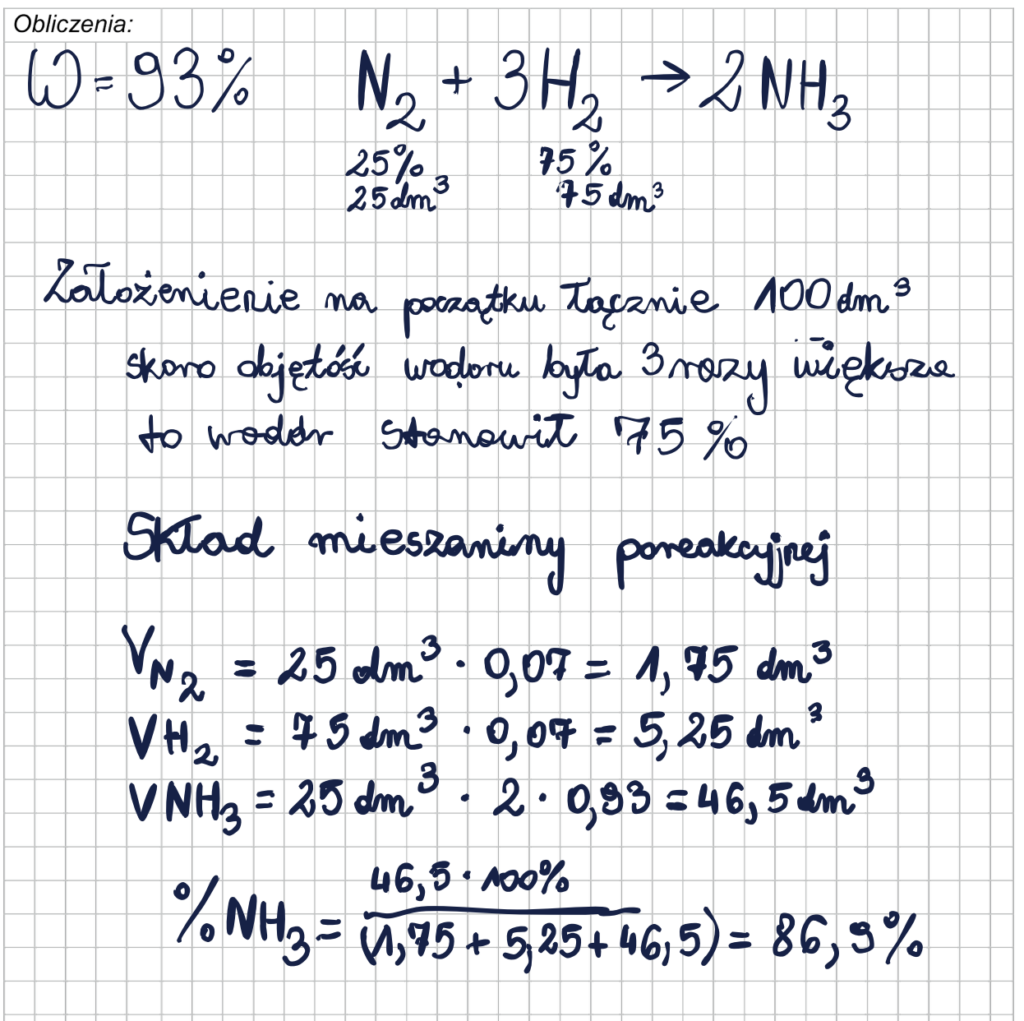 Obliczenia:
W = 93% N₂ + 3H₂ → 2NH₃
25% 75%
25dm³ 75dm³
Założenienie na początku łącznie 100dm³
skoro objętość wodoru była 3 razy większa
to wodór stanowił 75%
Skład mieszaniny poreakcyjnej
V_N₂ = 25 dm³ · 0,07 = 1,75 dm³
VH₂ = 75 dm³ · 0,07 = 5,25 dm³
VNH₃ = 25 dm³ · 2 · 0,93 = 46,5 dm³
46,5 · 100%
%NH₃ = (1,75 + 5,25 + 46,5) = 86,9%